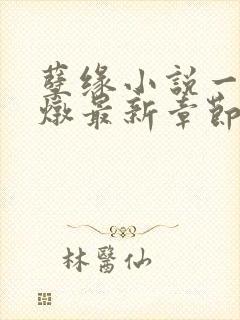 孽缘小説一
燉最新章節
林醫仙